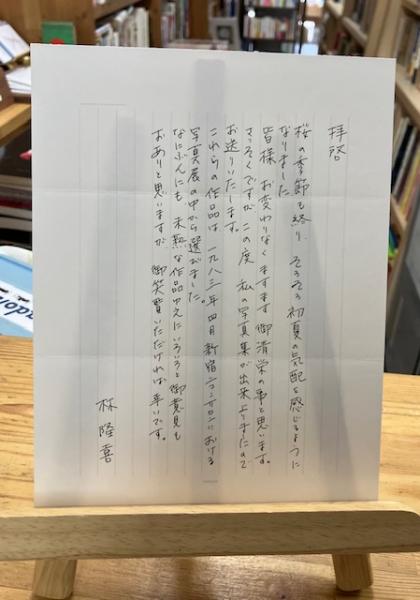 拝啓
桜の季節も終り、そろそろ初夏の気配を感じるように
なりました
皆様、お変わりなくますます御清栄の事と思います。
さっそくですが、この度、私の写真集が出来上りましたので
お送りいたします。
これらの作品は、一九八三年四月新宿ニコンサロンにおける
写真展の中から選びました。
なにぶんにも、未熟な作品ゆえにいろいろと御意見も
おありと思いますが、御笑覧いただければ幸いです。
林隆喜